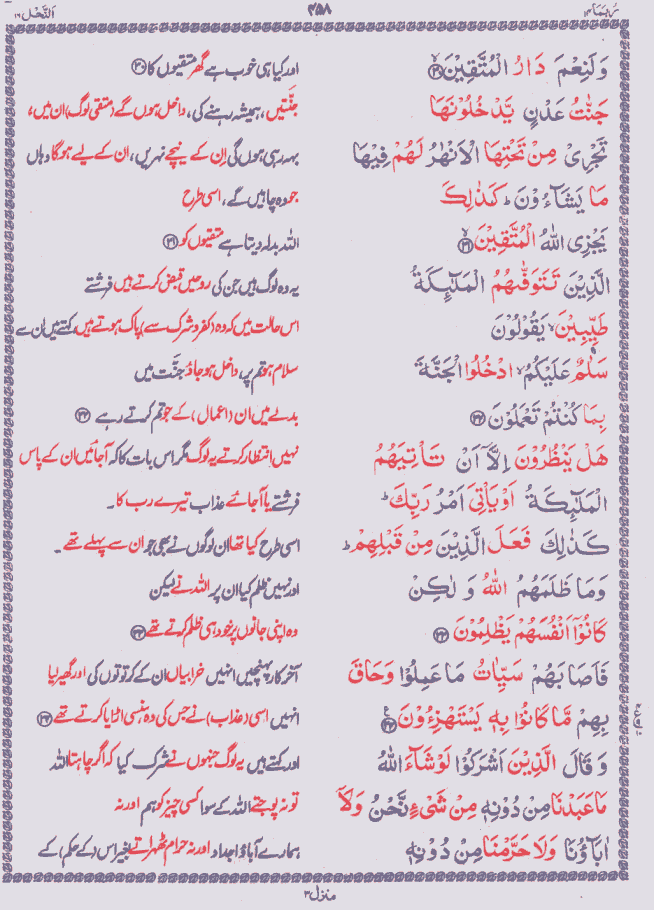 رُبَمَا ۱۴ ۴۵۸ اَلنَّحْل ۱۶
وَلَنِعْمَ دَارُ الْمُتَّقِيْنَ ۙ۳۰ اور کیا ہی خوب ہے گھر متقیوں کا ۳۰
جَنّٰتُ عَدْنٍ يَّدْخُلُوْنَهَا جنّتیں، ہمیشہ رہنے کی، داخل ہوں گے (متقی لوگ) ان میں،
تَجْرِيْ مِنْ تَحْتِهَا الْاَنْهٰرُ لَهُمْ فِيْهَا بہہ رہی ہوں گی اِن کے نیچے نہریں، ان کے لیے ہوگا وہاں
مَا يَشَآءُوْنَ ؕ كَذٰلِكَ جو وہ چاہیں گے، اسی طرح
يَجْزِي اللّٰهُ الْمُتَّقِيْنَ ۙ۳۱ اللہ بدلہ دیتا ہے متقیوں کو ۳۱
الَّذِيْنَ تَتَوَفّٰىهُمُ الْمَلٰٓئِكَةُ یہ وہ لوگ ہیں جن کی روحیں قبض کرتے ہیں فرشتے
طَيِّبِيْنَ ۙ يَقُوْلُوْنَ اس حالت میں کہ وہ (کفر و شرک سے) پاک ہوتے ہیں، کہتے ہیں ان سے
سَلٰمٌ عَلَيْكُمُ ۙ ادْخُلُوا الْجَنَّةَ سلام ہو تم پر، داخل ہو جاؤ جنّت میں
بِمَا كُنْتُمْ تَعْمَلُوْنَ ۳۲ بدلے میں ان (اعمال) کے جو تم کرتے رہے ۳۲
هَلْ يَنْظُرُوْنَ اِلَّآ اَنْ تَاْتِيَهُمُ نہیں انتظار کرتے یہ لوگ مگر اس بات کا کہ آجائیں ان کے پاس
الْمَلٰٓئِكَةُ اَوْ يَاْتِيَ اَمْرُ رَبِّكَ ؕ فرشتے یا آجائے عذاب تیرے رب کا۔
كَذٰلِكَ فَعَلَ الَّذِيْنَ مِنْ قَبْلِهِمْ ؕ اسی طرح کیا تھا ان لوگوں نے بھی جو ان سے پہلے تھے۔
وَمَا ظَلَمَهُمُ اللّٰهُ وَ لٰكِنْ اور نہیں ظلم کیا ان پر اللہ نے لیکن
كَانُوْۤا اَنْفُسَهُمْ يَظْلِمُوْنَ ۳۳ وہ اپنی جانوں پر خود ہی ظلم کرتے تھے ۳۳
فَاَصَابَهُمْ سَيِّاٰتُ مَا عَمِلُوْا وَحَاقَ آخر کار پہنچیں انہیں خرابیاں ان کے کرتوتوں کی اور گھیر لیا
بِهِمْ مَّا كَانُوْا بِهٖ يَسْتَهْزِءُوْنَ ۳۴ انہیں اسی (عذاب) نے جس کی وہ ہنسی اڑایا کرتے تھے ۳۴
وَ قَالَ الَّذِيْنَ اَشْرَكُوْا لَوْ شَآءَ اللّٰهُ اور کہتے ہیں یہ لوگ جنہوں نے شرک کیا کہ اگر چاہتا اللہ
مَا عَبَدْنَا مِنْ دُوْنِهٖ مِنْ شَيْءٍ نَّحْنُ وَلَآ تو نہ پوجتے اللہ کے سوا کسی چیز کو ہم اور نہ
اٰبَآؤُنَا وَلَا حَرَّمْنَا مِنْ دُوْنِهٖ ہمارے آباؤ اجداد اور نہ حرام ٹھہراتے بغیر اس (کے حکم) کے
منزل ۳